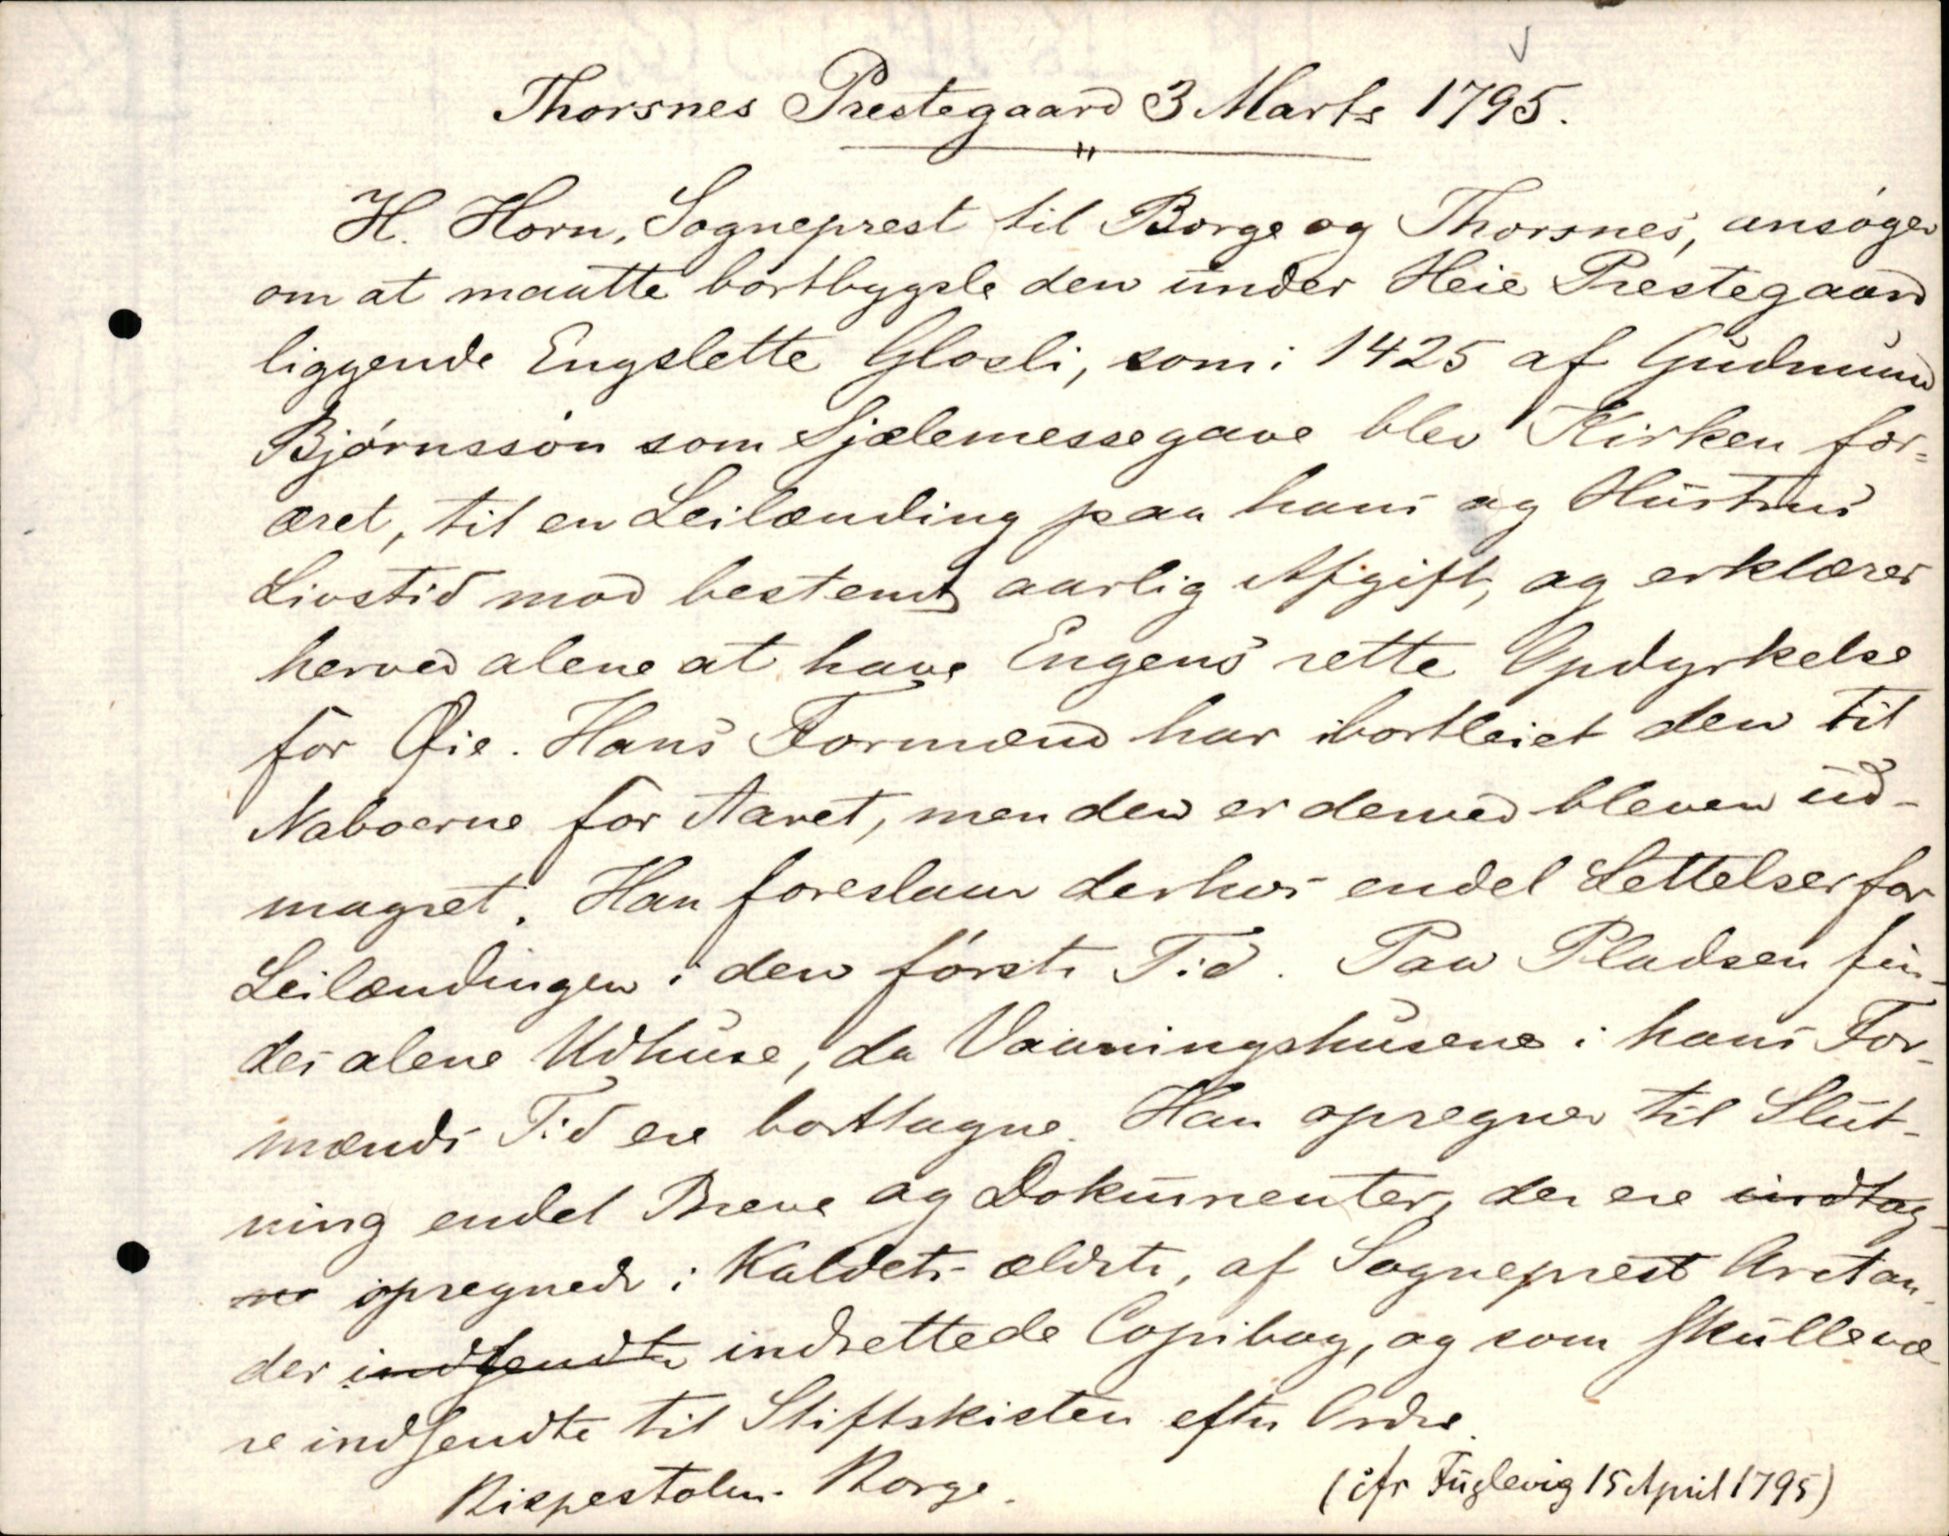 Thorsnes Prestegaard 3 Marts 1795.
H. Horn, Sogneprest til Borge og Thorsnes, ansøger
om at maatte bortbygsle den under Heie Prestegaard
liggende Engslette Glosli, som i 1425 af Gudmund
Bjørnssøn som Sjælemessegave blev Kirken for=
æret, til en Leilænding paa hans og Hustrus
Livstid mod bestemt aarlig Afgift, og erklærer
herved alene at have Engens rette Opdyrkelse
for Øie. Hans Formænd har bortleiet den til
Naboerne for Aaret, men den er derved bleven ud-
magret. Han foreslaar derhos endel Lettelser for
Leilændingen i den første Tid. Paa Pladsen fin-
des alene Udhuse, da Vaaningshusene i hans For-
mænds Tid ere borttagne. Han opregner til Slut-
ning endel Breve og Dokumenter, der ere indtag-
ne opregnede i Kaldets ældste, af Sogneprest Arctan-
der indsendte indrettede Copibog, og som skulle væ
re indsendte til Stiftskisten efter Ordre.
Bispestolen. Borge.
(cfr Fuglevig 15 April 1795)